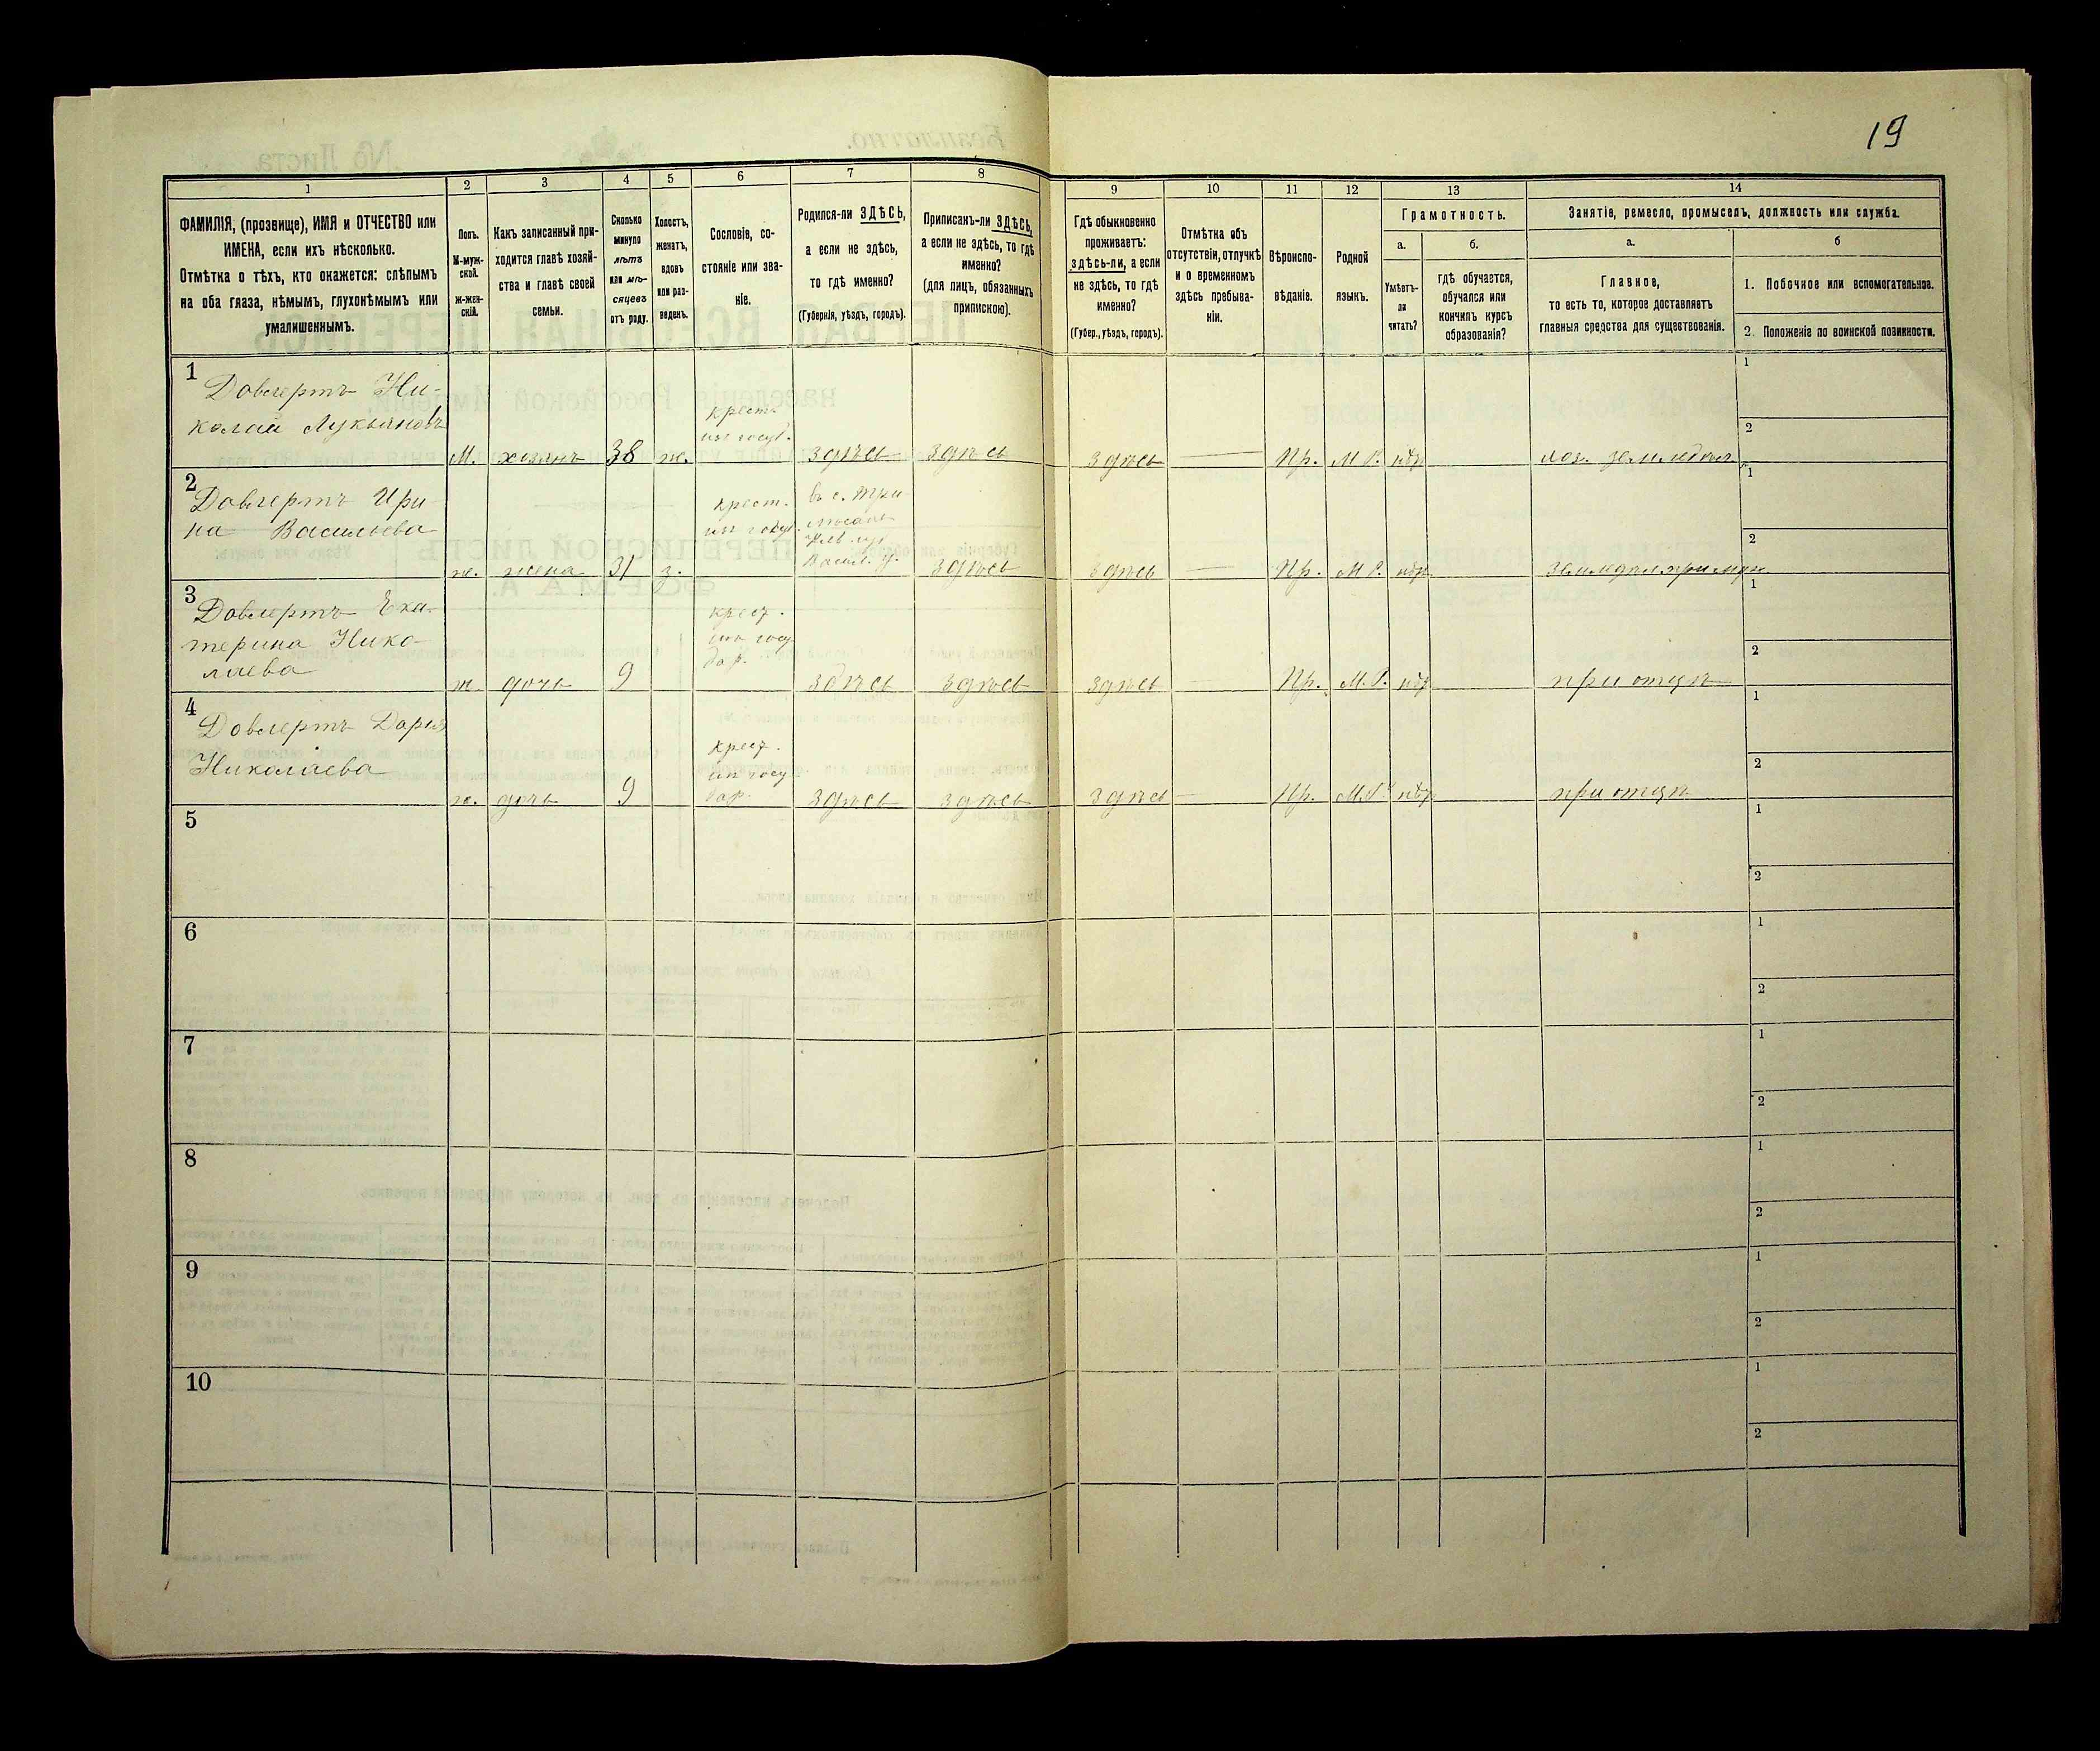 19
1
2
3
4
5
6
7
8
9
10
11
12
13
14
ФАМИЛІЯ, (прозвище), ИМЯ и ОТЧЕСТВО или
ИМЕНА, если ихъ нѣсколько.
Отмѣтка о тѣхъ, кто окажется: слѣпымъ
на оба глаза, нѣмымъ, глухонѣмымъ или
умалишеннымъ.
Полъ.
М-муж-
ской.
ж-жен-
скій.
Какъ записанный при-
ходится главѣ хозяй-
ства и главѣ своей
семьи.
Сколько
минуло
лѣтъ
или мѣ-
сяцевъ
отъ роду.
Холостъ,
женатъ,
вдовъ
или раз-
веденъ.
Сословіе, со-
стояніе или зва-
ніе.
Родился-ли ЗДѢСЬ,
а если не здѣсь,
то гдѣ именно?
(Губернія, уѣздъ, городъ).
Приписанъ-ли ЗДѢСЬ,
а если не здѣсь, то гдѣ
именно?
(для лицъ, обязанныхъ
припискою).
Гдѣ обыкновенно
проживаетъ:
здѣсь-ли, а если
не здѣсь, то гдѣ
именно?
(Губер., уѣздъ, городъ).
Отмѣтка объ
отсутствіи, отлучкѣ
и о временномъ
здѣсь пребыва-
ніи.
Вѣроиспо-
вѣданіе.
Родной
языкъ.
Грамотность.
а.
б.
Умѣетъ-
ли
читать?
гдѣ обучается,
обучался или
кончилъ курсъ
образованія?
Занятіе, ремесло, промыселъ, должность или служба.
а.
б
Главное,
то есть то, которое доставляетъ
главныя средства для существованія.
1. Побочное или вспомогательное.
2. Положеніе по воинской повинности.
1
Довгертъ Ни-
колай Лукьяновъ
М. хозяинъ 38 ж.
крест.
изъ госуд.
здѣсь здѣсь здѣсь Пр. М.Р. нѣт хоз. земледѣл
1
2
2
Довгертъ Ири
на Васильева
ж. жена 31 з.
крест.
изъ госуд.
въ с. Три
Васил. у.
здѣсь здѣсь Пр. М.Р. нѣт земледѣл при муж
1
2
3
Довгертъ Ека-
терина Нико-
лаева
ж. дочь 9
крест.
изъ госу
дар.
здѣсь здѣсь здѣсь Пр. М.Р. нѣт при отцѣ
1
2
4
Довгертъ Дарья
Николаева
ж. дочь 9
крест.
изъ госу
дар.
здѣсь здѣсь здѣсь Пр. М.Р. нѣт при отцѣ
1
2
5
1
2
6
1
2
7
1
2
8
1
2
9
1
2
10
1
2